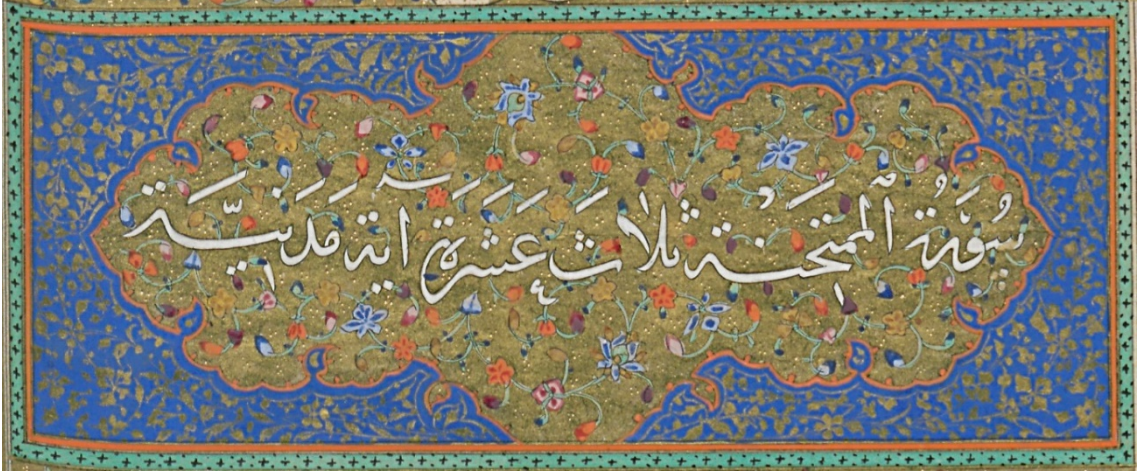 سُورَة الْمُمتَحنَة ثَلاث عَشَرَة اية مَدَنِيَّة